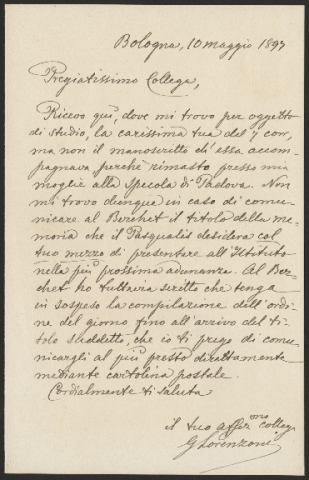 Bologna, 10 maggio 1897
Pregiatissimo Collega,
Ricevo qui, dove mi trovo per oggetto
di studio, la carissima tua del 7 cor,
ma non il manoscritto ch'essa accom-
pagnava perchè rimasto presso mia
moglie alla specola di Padova. Non
mi trovo dunque in caso di comu-
nicare al Berchet il titolo della me-
moria che il Pasqualis desidera col
tuo mezzo di presentare all'Istituto
nella più prossima adunanza. Al Ber-
chet ho tuttavia scritto che tenga
in sospeso la compilazione dell'ordi-
ne del giorno fino all'arrivo del ti-
tolo suddetto, che io ti prego di comu-
nicargli al più presto direttamente
mediante cartolina postale.
Cordialmente ti saluta
il tuo affez.mo collega
G Lorenzoni